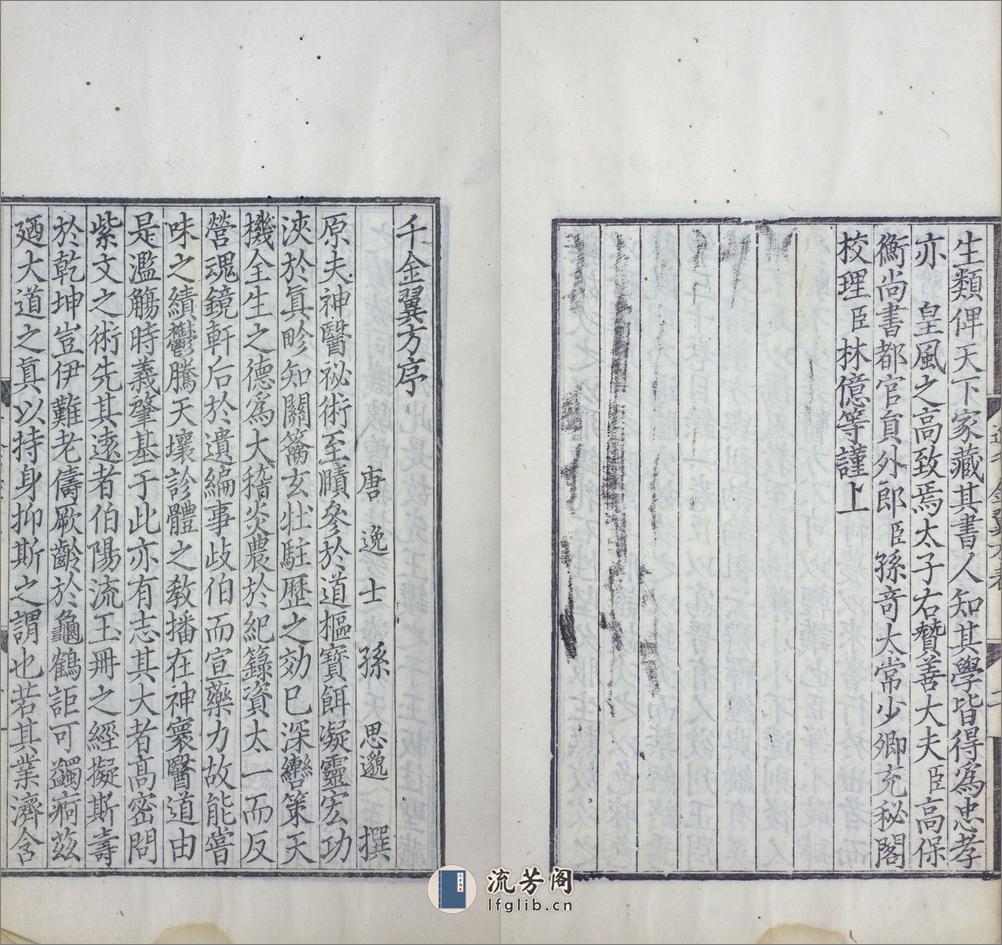 生類俾天下家藏其書人知其學皆得爲忠孝
亦　皇風之高致焉太子右贊善大夫臣高保
衡尚書都官員外郎臣孫竒太常少卿充秘閣
校理臣林億等謹上
千金翼方序
唐逸士孫思邈撰
原夫神醫祕術至賾參於道樞寶餌凝靈宏功
浹於眞畛知關籥玄牡駐歷之効巳深轡策天
機全生之德爲大稽炎農於紀籙資太一而反
營魂鏡軒后於遺編事歧伯而宣藥力故能嘗
味之績鬱騰天壤診體之教播在神寰醫道由
是濫觴時義肇基于此亦有志其大者高密問
紫文之術先其遠者伯陽流玉冊之經擬斯壽
於乾坤豈伊難老儔厥齡於龜鶴詎可蠲痾茲
廼大道之眞以持身抑斯之謂也若其業濟含
流芳阁
lfglib.cn